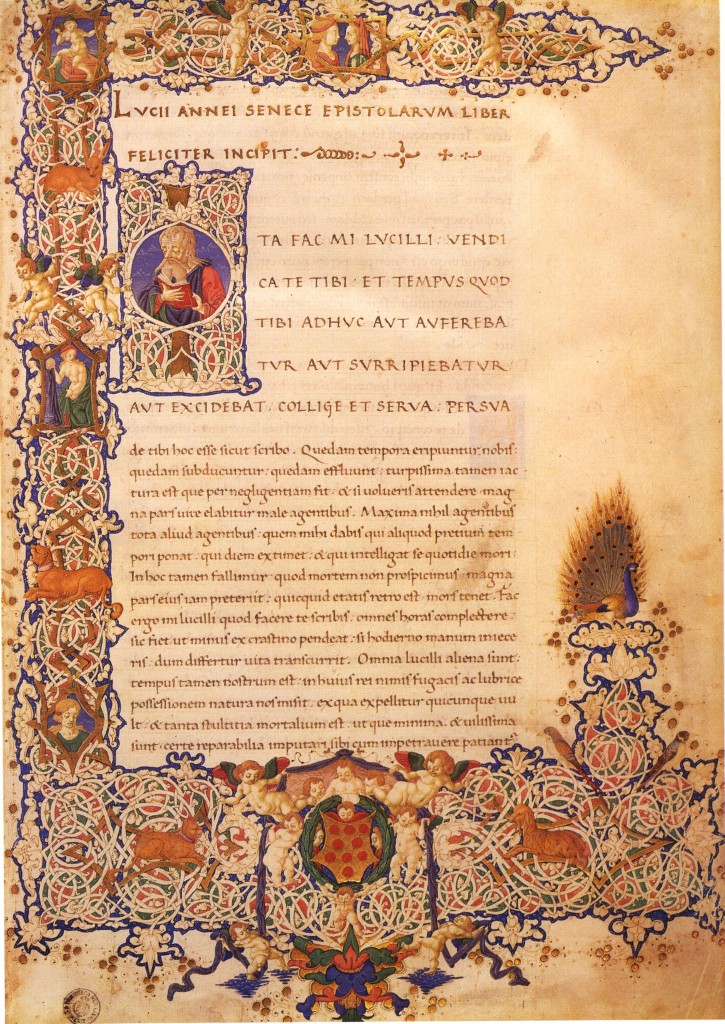 LVCII ANNEI SENECE EPISTOLARVM LIBER
FELICITER INCIPIT:
TA FAC MI LVCILLI: VENDI
CA TE TIBI: ET TEMPVS QVOD
TIBI ADHVC AVT AVFEREBA
TVR AVT SVRRIPIEBATVR:
AVT EXCIDEBAT: COLLIGE ET SERVA: PERSVA
de tibi hoc esse sicut scribo. Quedam tempora eripiuntur nobis:
quedam subducuntur: quedam effluunt: turpissima tamen iac
tura est que per negligentiam fit: & si volueris attendere mag
na pars vite elabitur male agentibus. Maxima nihil agentibus
tota aliud agentibus: quem mihi dabis qui aliquod pretium tem
pori ponat: qui diem extimet: & qui intelligat se quotidie mori:
In hoc tamen fallimur: quod mortem non prospicimus: magna
pars eius iam preteriit: quicquid etatis retro est: mors tenet. Fac
ergo mi lucilli quod facere te scribis: omnes horas complectere:
sic fiet ut minus ex crastino pendeat: si hodierno manum iniece
ris: dum differtur vita transcurrit. Omnia lucilli aliena sunt:
tempus tamen nostrum est: in huius rei nimis fugacis ac lubrice
possessionem natura nos misit: ex qua expellitur quicunque vu
lt: & tanta stultitia mortalium est: ut que minima & vilissima
sunt: certe reparabilia imputari sibi cum impetravere patiantr